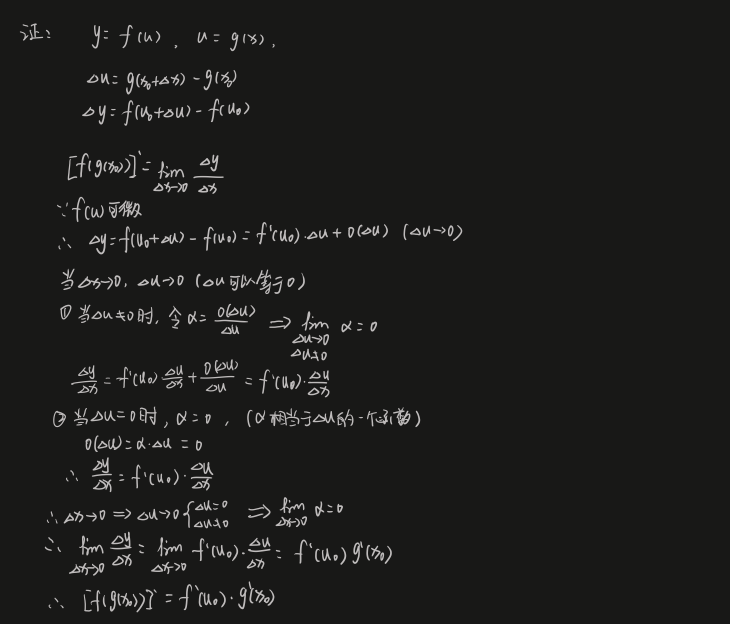 证: y = f(u), u = g(x),
Δu = g(x₀+Δx) - g(x₀)
Δy = f(u₀+Δu) - f(u₀)
[f(g(x₀))]' = lim Δx→0 Δy/Δx
∵ f(u) 可微
∴ Δy = f(u₀+Δu) - f(u₀) = f'(u₀)·Δu + o(Δu) (Δu→0)
当 Δx→0, Δu→0 (Δu 可以等于0)
① 当Δu≠0时, 令 α = o(Δu)/Δu ⇒ lim Δu→0 Δu≠0 α = 0
Δy/Δx = f'(u₀) Δu/Δx + o(Δu)/Δu = f'(u₀)·Δu/Δx
② 当Δu=0时, α=0, (α相当于Δu的一个函数)
o(Δu) = α·Δu = 0
∴ Δy/Δx = f'(u₀)·Δu/Δx
∴ Δx→0 ⇒ Δu→0 { Δu=0 Δu≠0 ⇒ lim Δx→0 α=0
∴ lim Δx→0 Δy/Δx = lim Δx→0 f'(u₀)·Δu/Δx = f'(u₀) g'(x₀)
∴ [f(g(x₀))]' = f'(u₀)·g'(x₀)